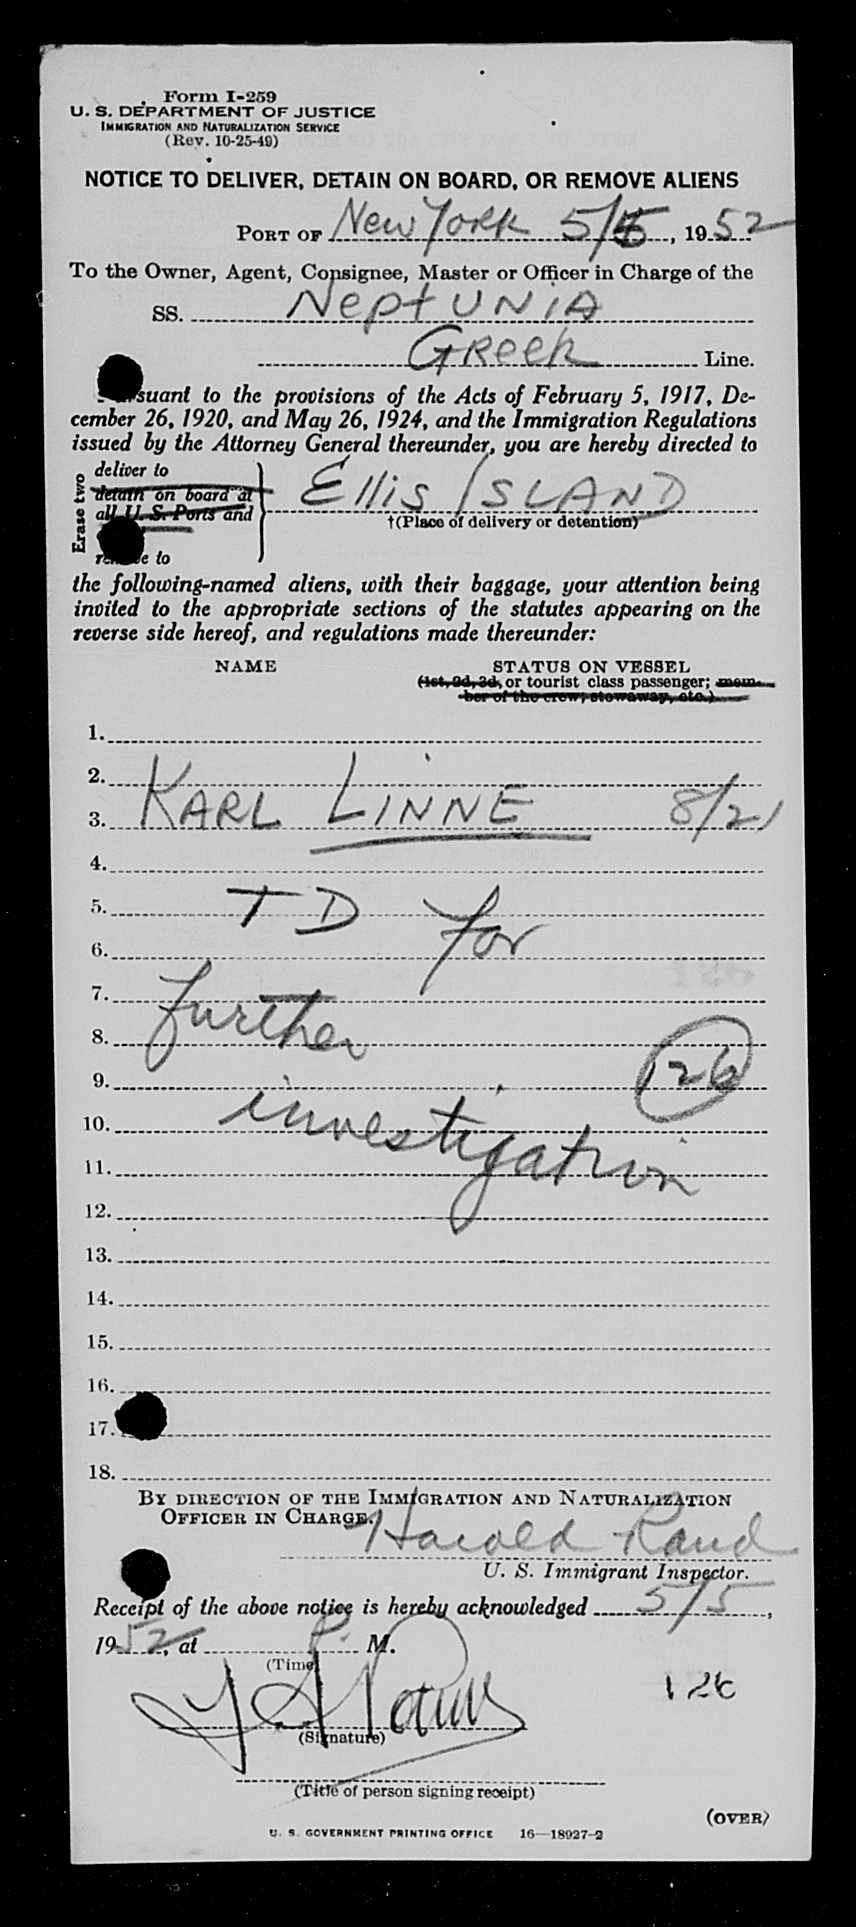 Form I-259
U. S. DEPARTMENT OF JUSTICE
IMMIGRATION AND NATURALIZATION SERVICE
(Rev. 10-25-49)
NOTICE TO DELIVER, DETAIN ON BOARD, OR REMOVE ALIENS
PORT OF New York 5/5, 1952
To the Owner, Agent, Consignee, Master or Officer in Charge of the
SS. Neptunia
Greek Line.
suant to the provisions of the Acts of February 5, 1917, De-
cember 26, 1920, and May 26, 1924, and the Immigration Regulations
issued by the Attorney General thereunder, you are hereby directed to
Erase two
deliver to
detain on board at
all U. S. Ports and
Ellis ISLAND
†(Place of delivery or detention)
e to
the following-named aliens, with their baggage, your attention being
invited to the appropriate sections of the statutes appearing on the
reverse side hereof, and regulations made thereunder:
NAME STATUS ON VESSEL
(1st, 2d, 3d, or tourist class passenger; mem-
ber of the crew; stowaway, etc.)
1.
2.
3. KARL LINNE 8/21
4.
5. TD for
6.
7. further
8.
9. 126
10. investigation
11.
12.
13.
14.
15.
16.
17.
18.
BY DIRECTION OF THE IMMIGRATION AND NATURALIZATION
OFFICER IN CHARGE.
Harold Rand
U. S. Immigrant Inspector.
Receipt of the above notice is hereby acknowledged 5/5,
1952, at P. M.
(Time)
126
(Signature)
(Title of person signing receipt)
(OVER)
U. S. GOVERNMENT PRINTING OFFICE 16—18927-2